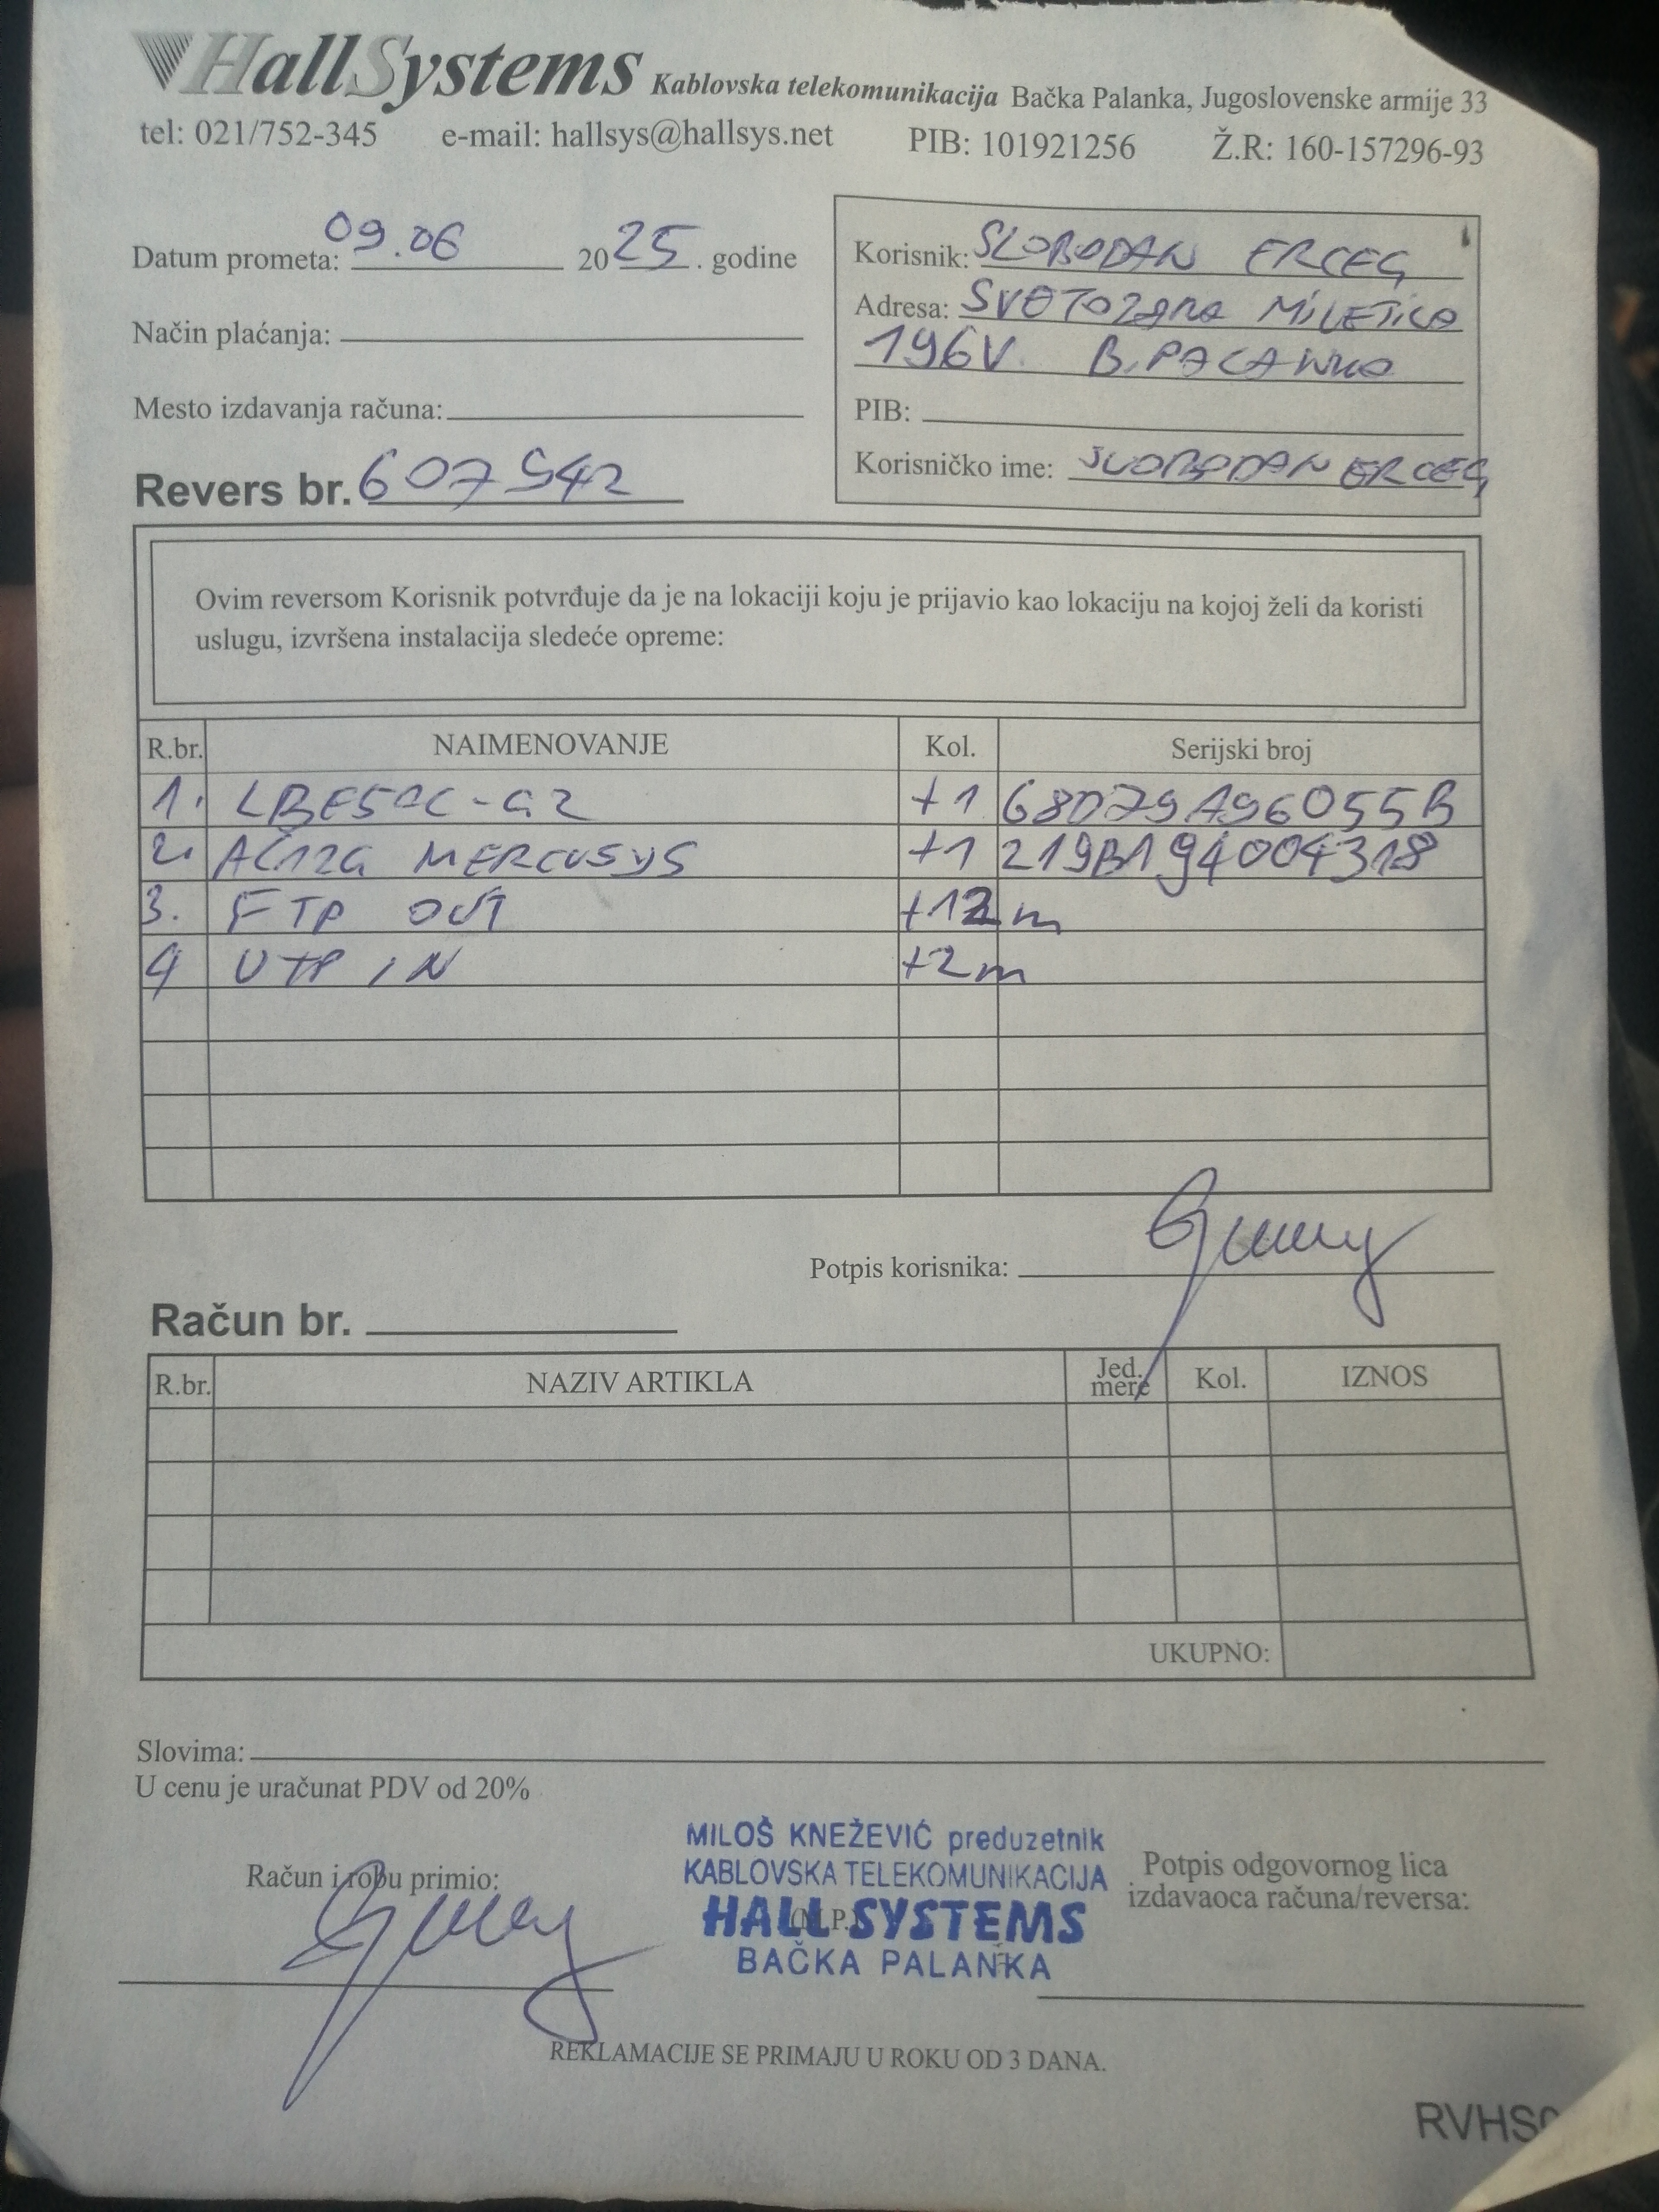 HallSystems Kablovska telekomunikacija Bačka Palanka, Jugoslovenske armije 33
tel: 021/752-345 e-mail: hallsys@hallsys.net PIB: 101921256 Ž.R: 160-157296-93
Datum prometa: 09.06 2025. godine
Način plaćanja:
Mesto izdavanja računa:
Revers br. 607542
Korisnik: SLOBODAN ERCEG
Adresa: SVETOZARA MILETICA
196V. B. PALANKA
PIB:
Korisničko ime: SLOBODAN ERCEG
Ovim reversom Korisnik potvrđuje da je na lokaciji koju je prijavio kao lokaciju na kojoj želi da koristi
uslugu, izvršena instalacija sledeće opreme:
R.br. NAIMENOVANJE Kol. Serijski broj
1. LBE5AC-G2 +1 68D79A96055B
2. AC12G MERCUSYS +1 219B194004318
3. FTP OUT +12m
4 UTP IN +2m
Potpis korisnika:
Račun br.
R.br. NAZIV ARTIKLA Jed. mere Kol. IZNOS
UKUPNO:
Slovima:
U cenu je uračunat PDV od 20%
MILOŠ KNEŽEVIĆ preduzetnik
KABLOVSKA TELEKOMUNIKACIJA
HALL SYSTEMS
BAČKA PALANKA
Račun i robu primio:
(M.P.)
Potpis odgovornog lica
izdavaoca računa/reversa:
REKLAMACIJE SE PRIMAJU U ROKU OD 3 DANA.